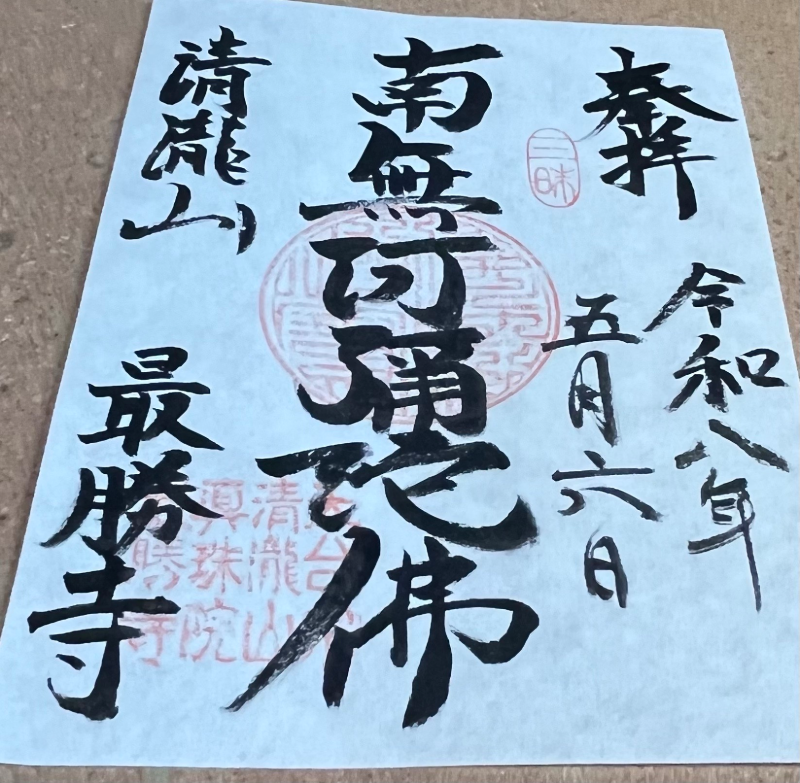 奉拝
三昧
令和八年
五月六日
南無阿彌陀佛
天台宗
清瀧山
眞珠院
最勝寺
清瀧山
最勝寺